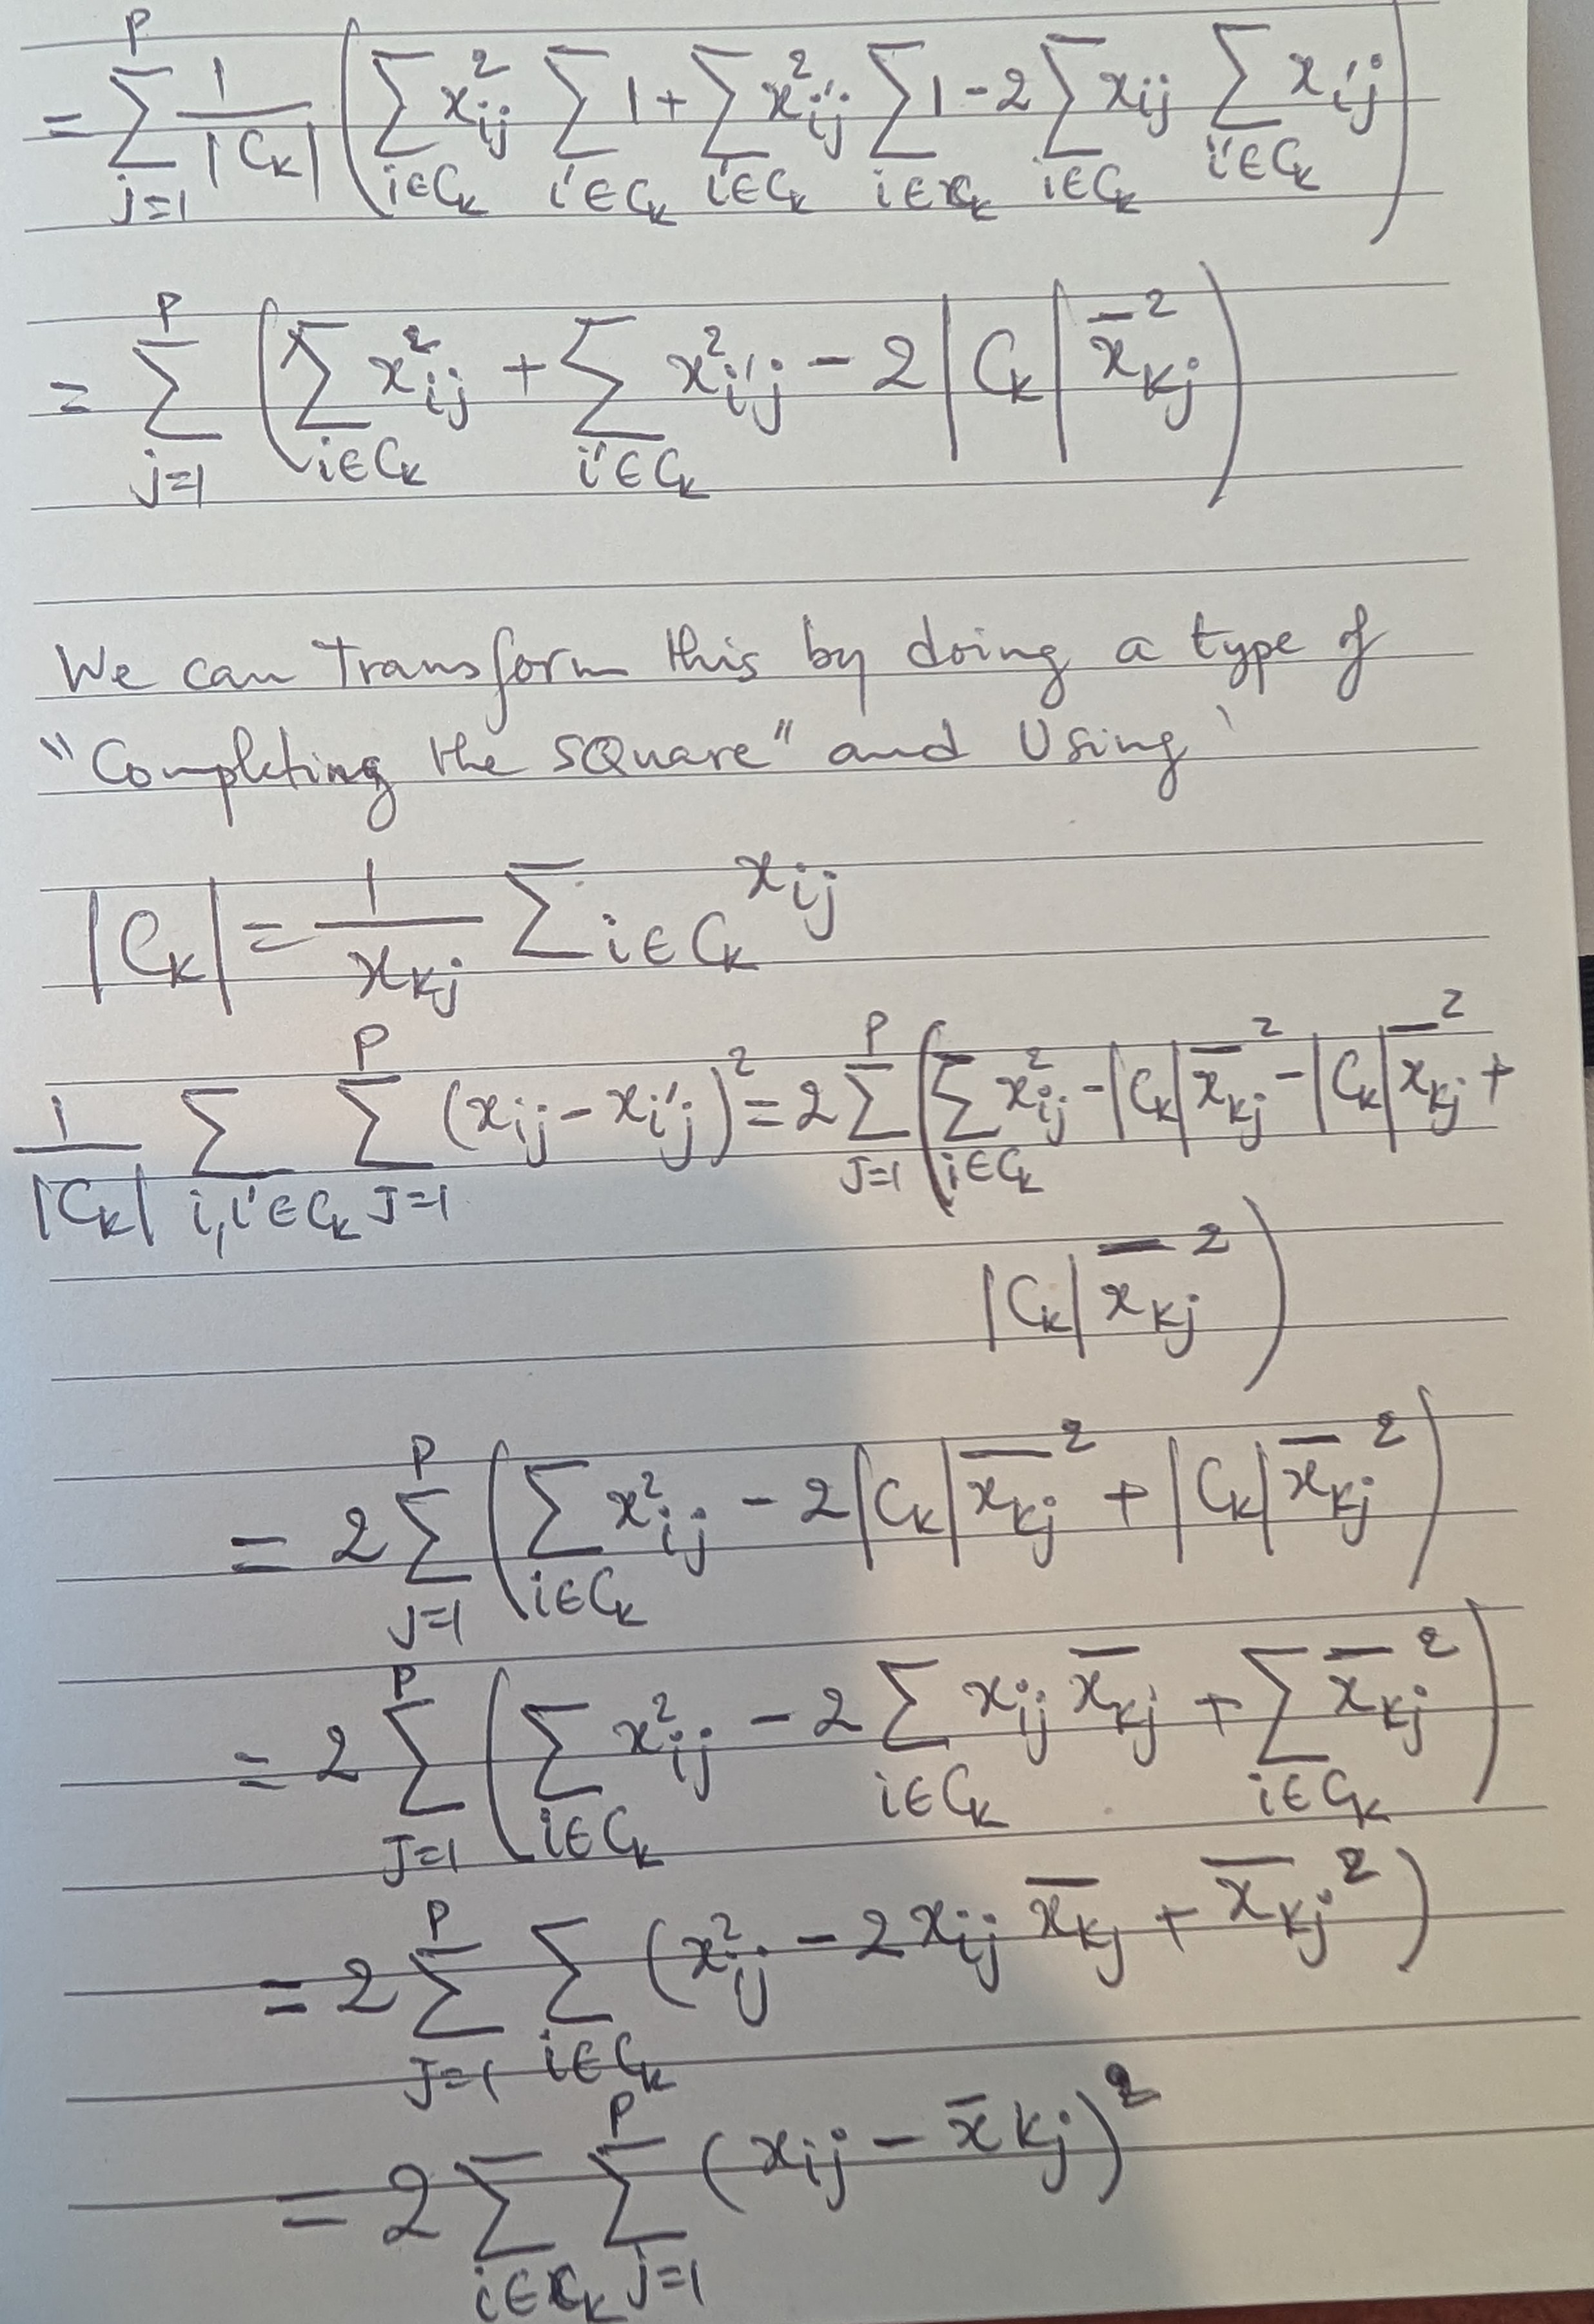 = ∑_{j=1}^{P} 1/|C_k| (∑_{i∈C_k} x²_{ij} ∑_{i'∈C_k} 1 + ∑_{i'∈C_k} x²_{i'j} ∑_{i∈C_k} 1 - 2 ∑_{i∈C_k} x_{ij} ∑_{i'∈C_k} x_{i'j})
= ∑_{j=1}^{P} (∑_{i∈C_k} x²_{ij} + ∑_{i'∈C_k} x²_{i'j} - 2|C_k| x̄_{kj}²)
We can Transform this by doing a type of
"Completing the SQuare" and Using
|C_k| = 1/x_{kj} ∑_{i∈C_k} x_{ij}
1/|C_k| ∑_{i,i'∈C_k} ∑_{J=1}^{P} (x_{ij} - x_{i'j})² = 2 ∑_{J=1}^{P} (∑_{i∈C_k} x²_{ij} - |C_k| x̄_{kj}² - |C_k| x̄_{kj}² +
|C_k| x̄_{kj}²)
= 2 ∑_{J=1}^{P} (∑_{i∈C_k} x²_{ij} - 2|C_k| x̄_{kj}² + |C_k| x̄_{kj}²)
= 2 ∑_{J=1}^{P} (∑_{i∈C_k} x²_{ij} - 2 ∑_{i∈C_k} x_{ij} x̄_{kj} + ∑_{i∈C_k} x̄_{kj}²)
= 2 ∑_{J=1}^{P} ∑_{i∈C_k} (x²_{ij} - 2x_{ij} x̄_{kj} + x̄_{kj}²)
= 2 ∑_{i∈C_k} ∑_{j=1}^{P} (x_{ij} - x̄_{kj})²